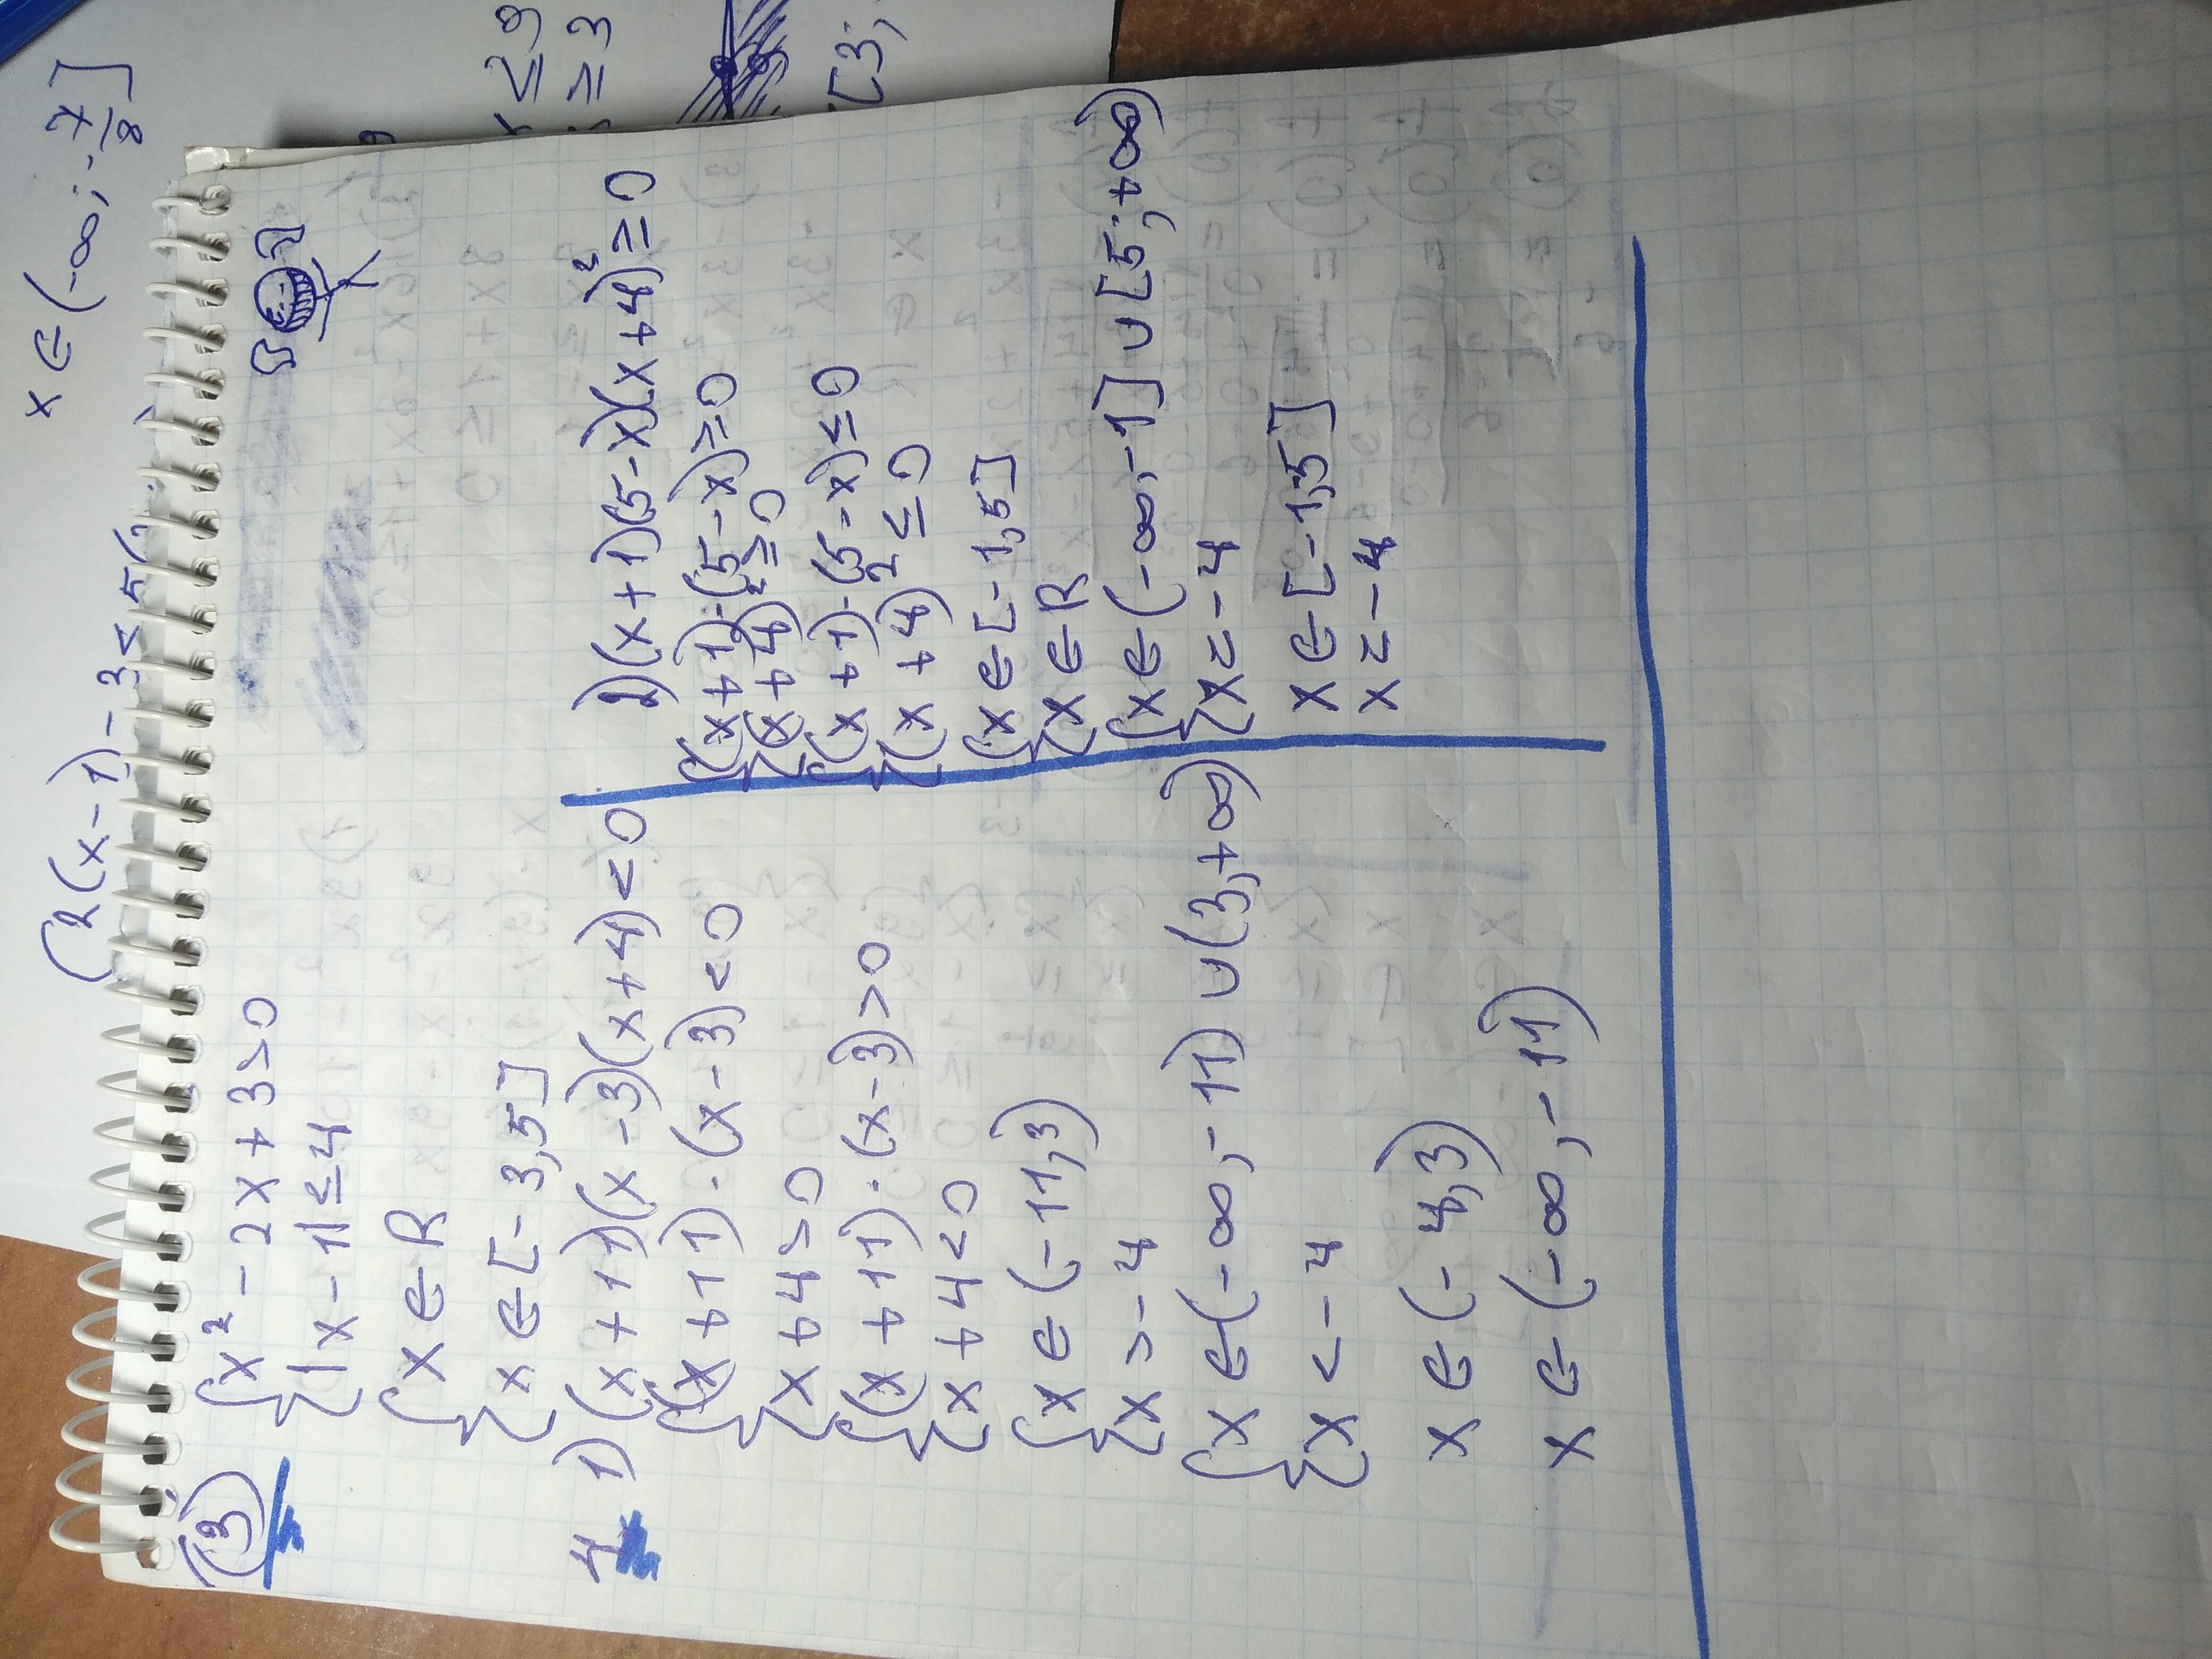 x ∈ (-∞; -7/8]
(2(x-1)-3<5(
x ≤ 9
≥ 3
[3;
(3) {x² - 2x + 3 > 0
{|x - 1| ≤ 4
{x ∈ R
{x ∈ [-3,5]
4 1) (x + 11)(x - 3)(x + 4) < 0
{(x + 11) · (x - 3) < 0
{x + 4 > 0
{(x + 11) · (x - 3) > 0
{x + 4 < 0
{x ∈ (-11,3)
{x > -4
{x ∈ (-∞, -11) ∪ (3, +∞)
{x < -4
x ∈ (-4,3)
x ∈ (-∞, -11)
2) (x + 1)(5 - x)(x + 4)² ≥ 0
{(x + 1) · (5 - x) ≥ 0
{(x + 4)² ≥ 0
{(x + 1) · (5 - x) ≤ 0
{(x + 4)² ≤ 0
{x ∈ [-1,5]
{x ∈ R
{x ∈ (-∞, -1] ∪ [5; +∞)
{x = -4
x ∈ [-1,5]
x = -4